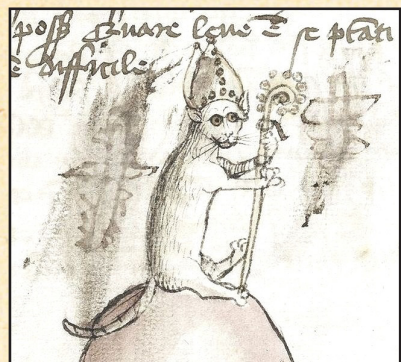 poss seruare leue ē se ptāti
ē difficile